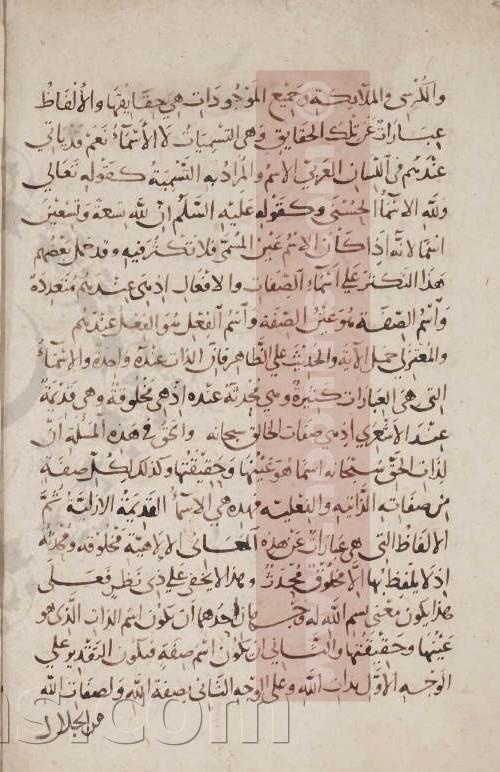 والكرسي والملائكة وجميع الموجودات هي حقايقها والألفاظ
عبارات عن تلك الحقايق وهي التسميات لا الأسماء نعم قد ياتي
عندهم في اللسان العربي الاسم والمراد به التسمية كقوله تعالى
ولله الاسماء الحسنى وكقوله عليه السلم ان لله تسعة وتسعين
اسما لانه اذا كان الاسم عين المسمى فلا تكثر فيه وقد حمل بعضهم
هذا التكثر على اسماء الصفات والافعال اذ هي عندهم متعددة
واسم الصفة هو عين الصفة واسم الفعل هو الفعل عندهم
والمعتزلي حمل الآية والحديث على الظاهر فان الذات عنده واحدة والاسماء
التي هي العبارات كثيرة وهي محدثة عنده اذ هي مخلوقة وهي قديمة
عند الأشعري اذ هي صفات الخالق سبحانه والحق في هذه المسلة ان
لذات الحق سبحانه اسما هو عينها وحقيقتها وكذلك لكل صفة
من صفاته الذاتية والفعلية فهذه هي الاسماء القديمة الازلية ثم
الالفاظ التي هي عبارات عن هذه المعاني الالاهية مخلوقة ومحدثة
اذ لا يلفظ بها الا مخلوق محدث وهذا لا يخفى على ذي نظر فعلى
هذا يكون معنى بسم الله له وجهان احدهما ان يكون اسم الذات الذي هو
عينها وحقيقتها والثاني ان يكون اسم صفة فيكون التقدير على
الوجه الاول بذات الله وعلى الوجه الثاني بصفة الله ولصفات الله
من الجلال
ns.com